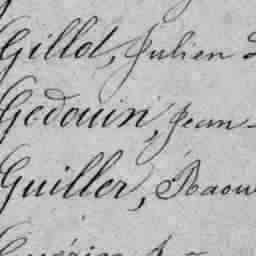 Gillot, Julien
Gedouin, Jean-
Guiller, Raou